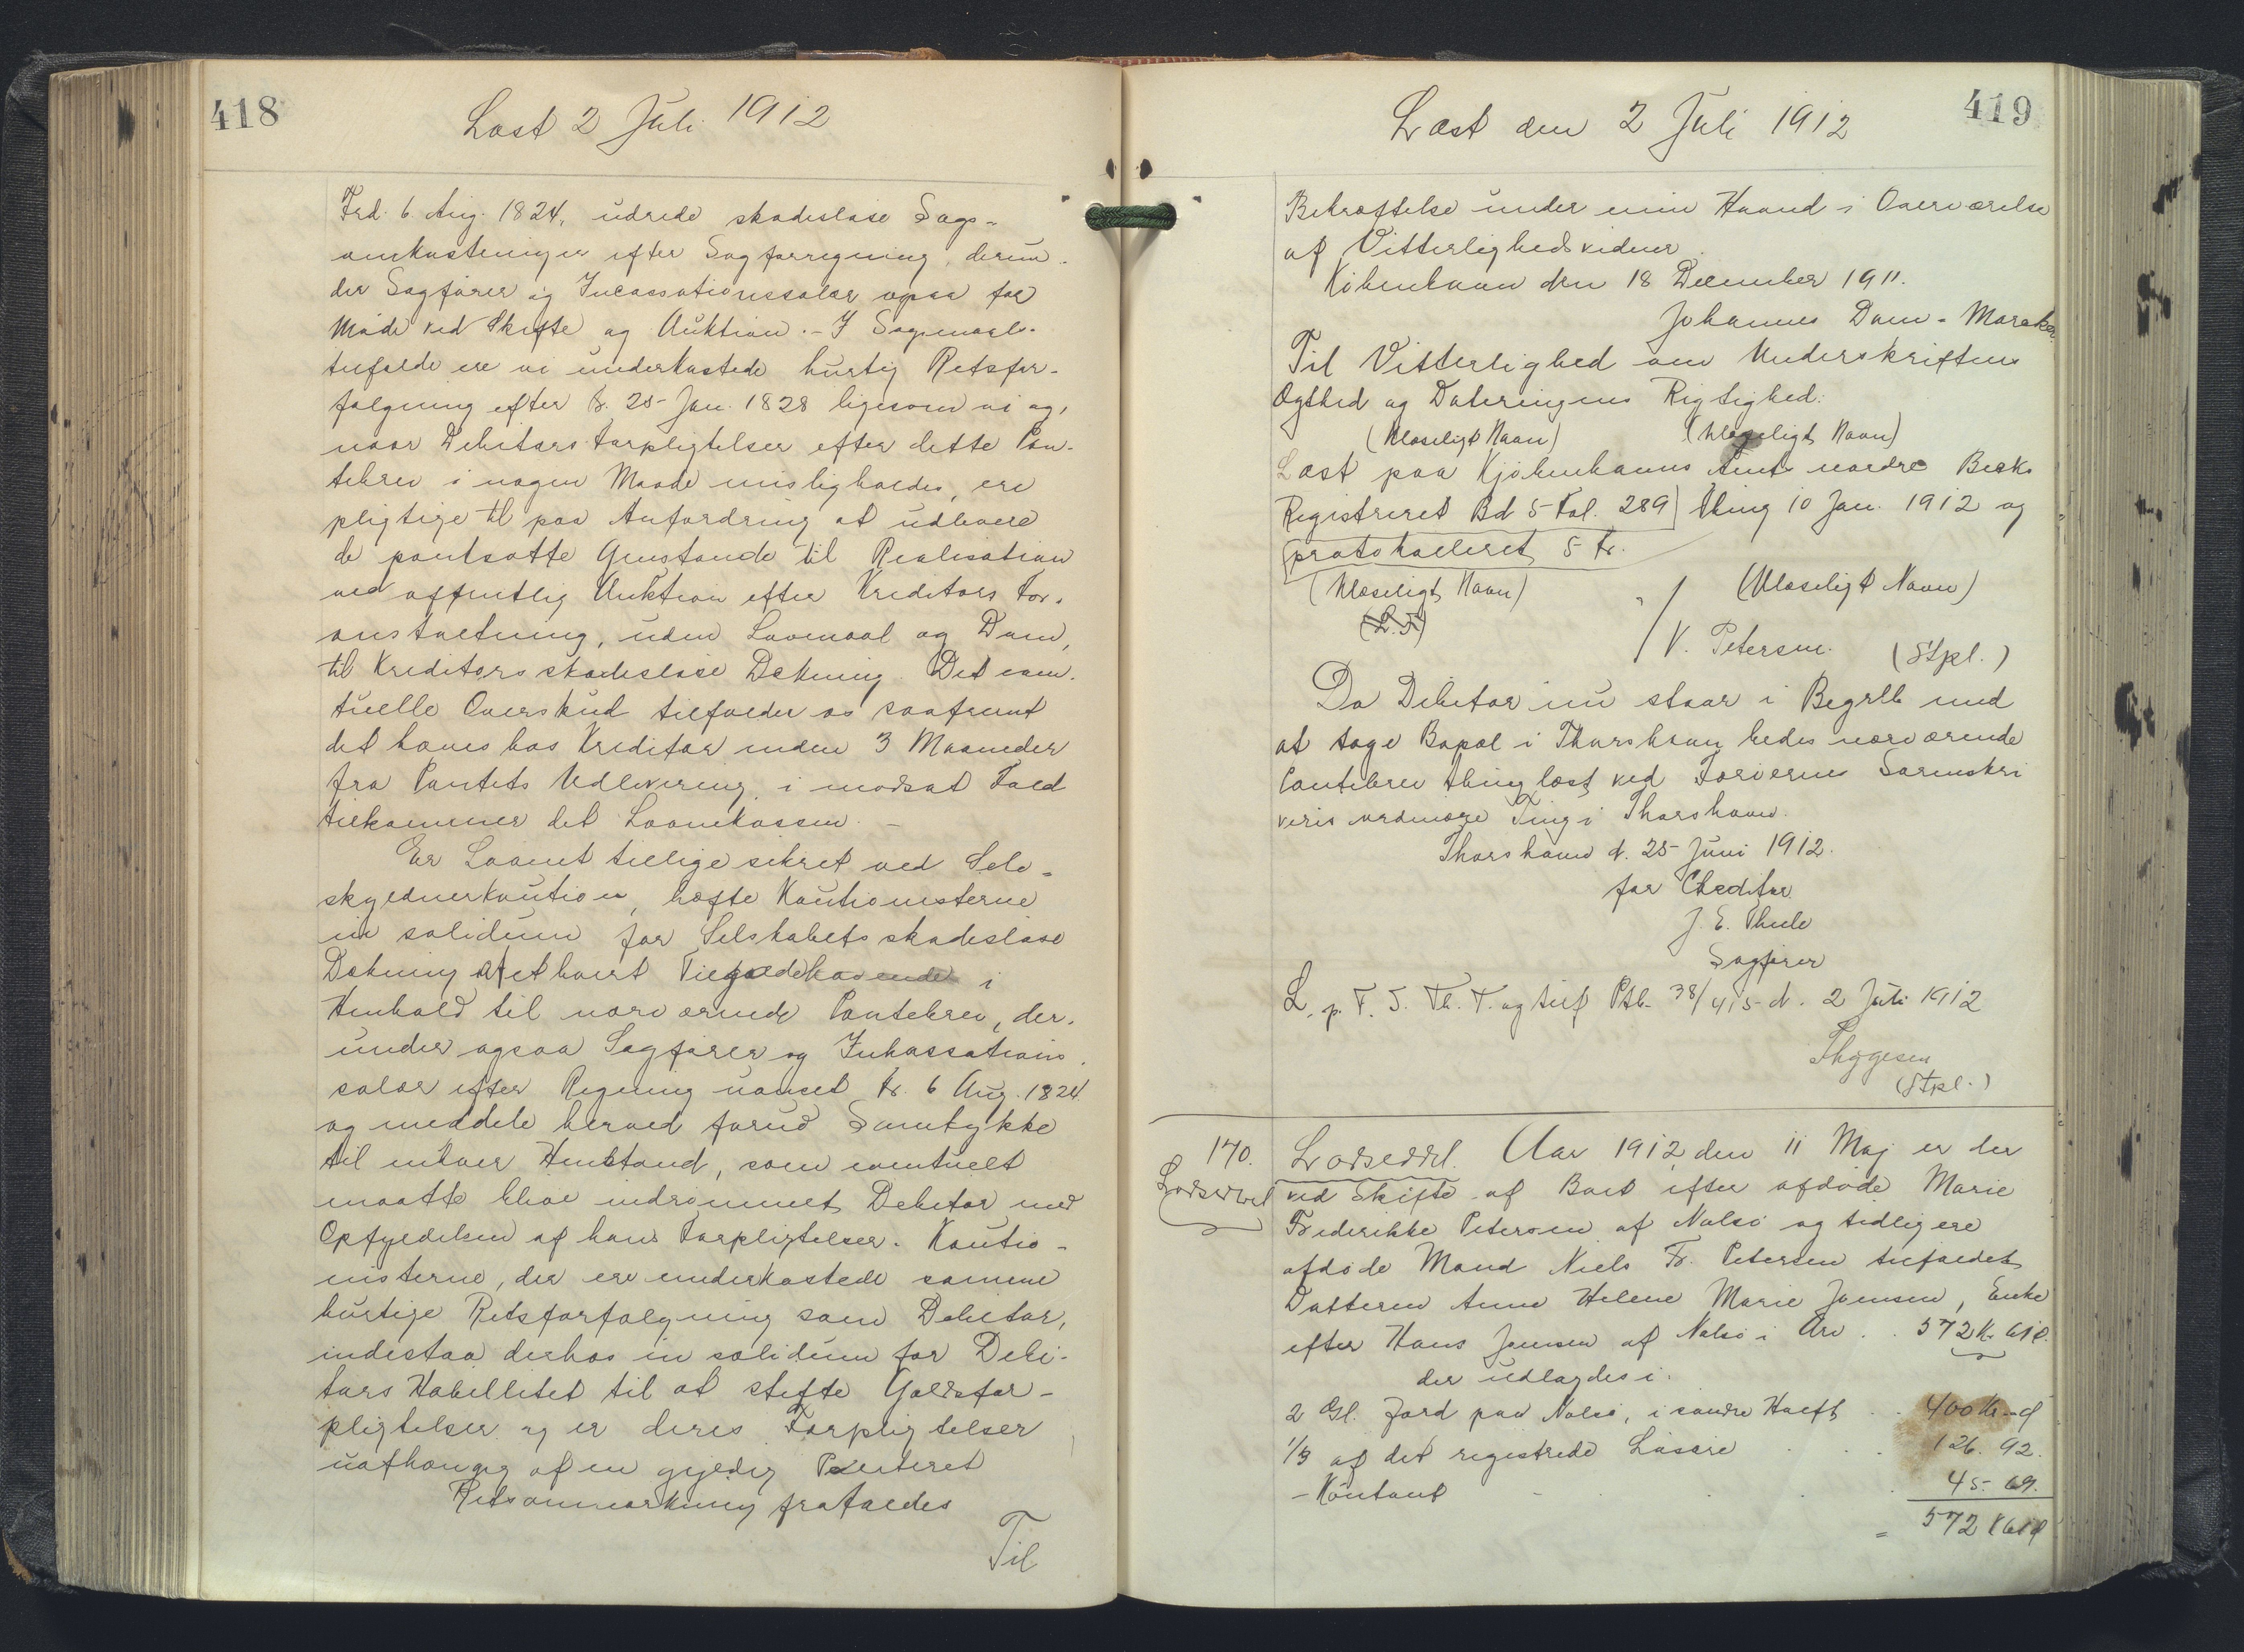 418
Læst 2 Juli 1912
Frd. 6 Aug. 1824, udrede skadesløse Sags-
omkostninger efter Sagførregning, derun-
der Sagfører og Incassationssalær ogsaa for
Møde ved Skifte og Auktion. - I Søgsmaals-
tilfælde ere vi underkastede hurtig Retsfor-
følgning efter Fr. 25 Jan. 1828 ligesom vi og,
naar Debitors Forpligtelser efter dette Pan-
tebrev i nogen Maade misligholdes, ere
pligtige til paa Anfordring at udlevere
de pantsatte Genstande til Realisation
ved offentlig Auktion efter Kreditors For-
anstaltning, uden Lovmaal og Dom,
til Kreditors skadesløse Dækning. Det even-
tuelle Overskud tilfalder os saafremt
det hæves hos Kreditor inden 3 Maaneder
fra Pantets Udlevering, i modsat Fald
tilkommer det Laanekassen. -
Er Laanet tillige sikret ved Selv-
skyldnerkaution, hæfte Kautionisterne
in solidum for Selskabets skadesløse
Dækning af ethvert Tilgodehavende i
Henhold til nærværende Pantebrev, der-
under ogsaa Sagfører og Inkassations-
salær efter Regning uanset Fr. 6 Aug. 1824
og meddele herved forud Samtykke
til enhver Henstand, som eventuelt
maatte blive indrømmet Debitor med
Opfyldelsen af hans Forpligtelser. Kautio-
nisterne, der ere underkastede samme
hurtige Retsforfølgning som Debitor,
indestaa derhos in solidum for Debi-
tors Habillitet til at stifte Gældsfor-
pligtelser og er deres Forpligtelser
uafhængig af en gyldig
Retsanmærkning frafaldes
Til
419
Læst den 2 Juli 1912
Bekræftelse under min Haand i Overværelse
af Vitterlighedsvidner.
København den 18 December 1911.
Johannes Dam-
Til Vitterlighed om Underskriftens
Ægthed og Dateringens Rigtighed:
(Ulæseligt Navn) (Ulæseligt Navn)
Læst paa Kjøbenhavns Amts nordre Birks
Registreret Bd 5 Fol. 289 Thing 10 Jan. 1912 og
protokolleret 5 Kr.
(Ulæseligt Navn) (Ulæseligt Navn)
(L.S.)
V. Petersen. (Stpl.)
Da Debitor nu staar i Begreb med
at tage Bopæl i Thorshavn bedes nærværende
Pantebrev thinglæst ved Færøernes Sorenskri
veris ordinære Ting i Thorshavn.
Thorshavn d. 25 Juni 1912.
for Creditor
J. E. Thule
Sagfører
L. p. F. S. Th. T. og tilf Ptb. 38/415 d. 2 Juli 1912
Thygesen
(Stpl.)
170. Lodseddel. Aar 1912 den 11 Maj er der
Lodseddel ved Skifte af Boet efter afdøde Marie
Frederikke Petersen af Nolsø og tidligere
afdøde Mand Niels Fr. Petersen tilfaldet
Datteren Anne Helene Marie Joensen, Enke
efter Hans Joensen af Nolsø i Arv . . 572 Kr 61 Ø.
der udlagdes i.
2 Gl. Jord paa Nolsø, i søndre Hælft . . 400 Kr - Ø
1/3 af det registrede Løsøre . . . 126. 92.
- Kontant - . . . 45. 69.
= 572 K 61 Ø